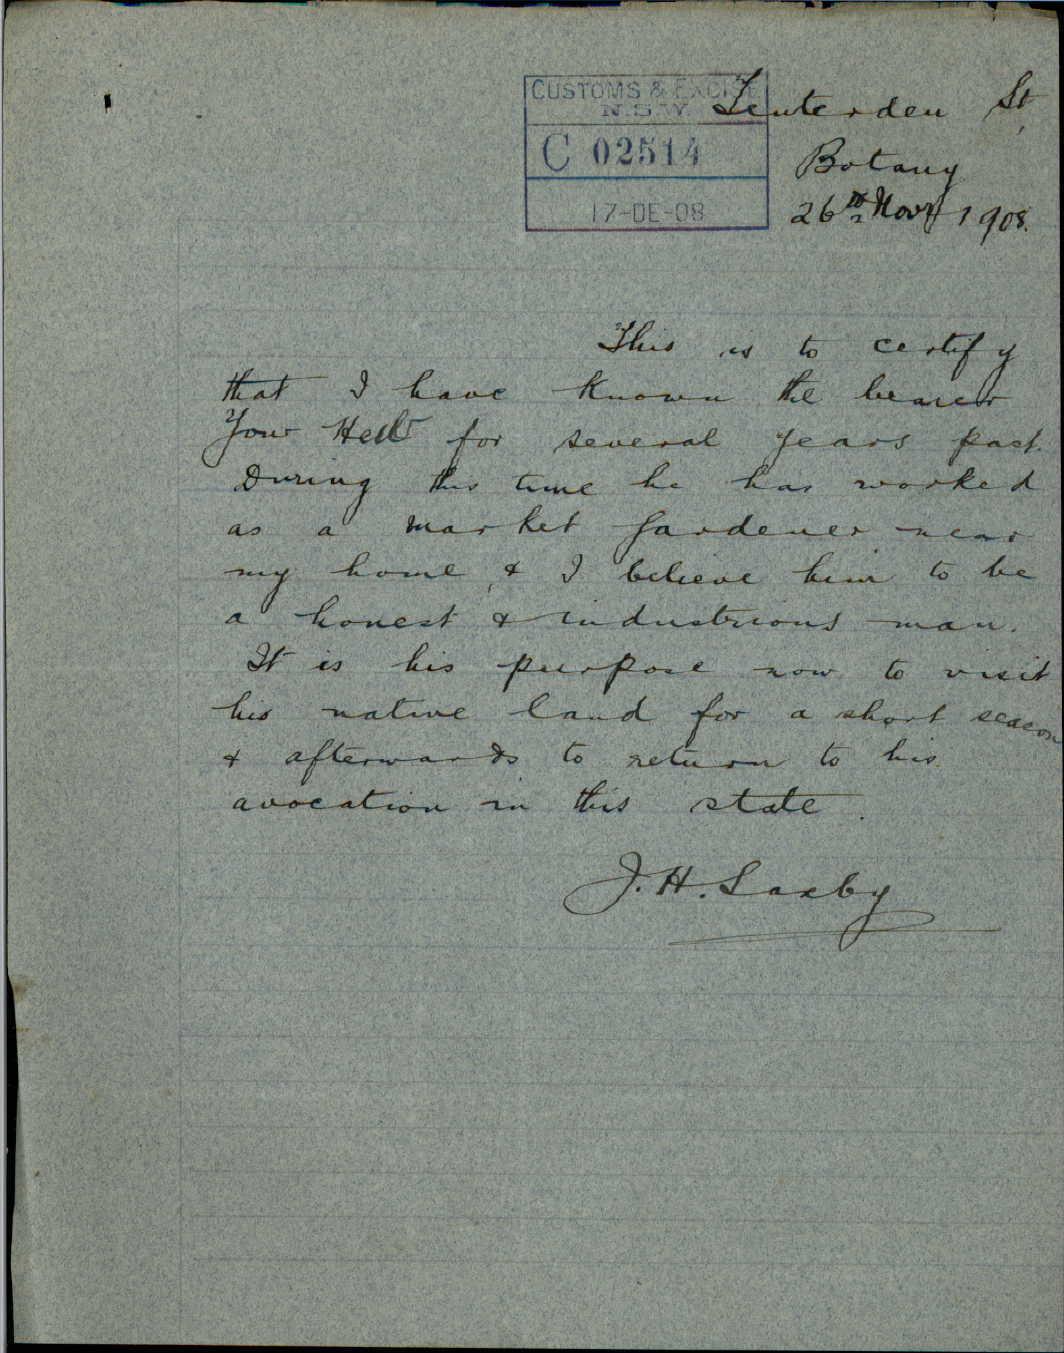 CUSTOMS & EXCISE
N.S.W.
C 02514
17-DE-08
Tenterden St
Botany
26th Novr 1908.
This is to certify
that I have known the bearer
Yow for several years past.
During this time he has worked
as a market gardener near
my home, & I believe him to be
a honest & industrious man.
It is his purpose now to visit
his native land for a short season
& afterwards to return to his
avocation in this state.
J. H. Saxby